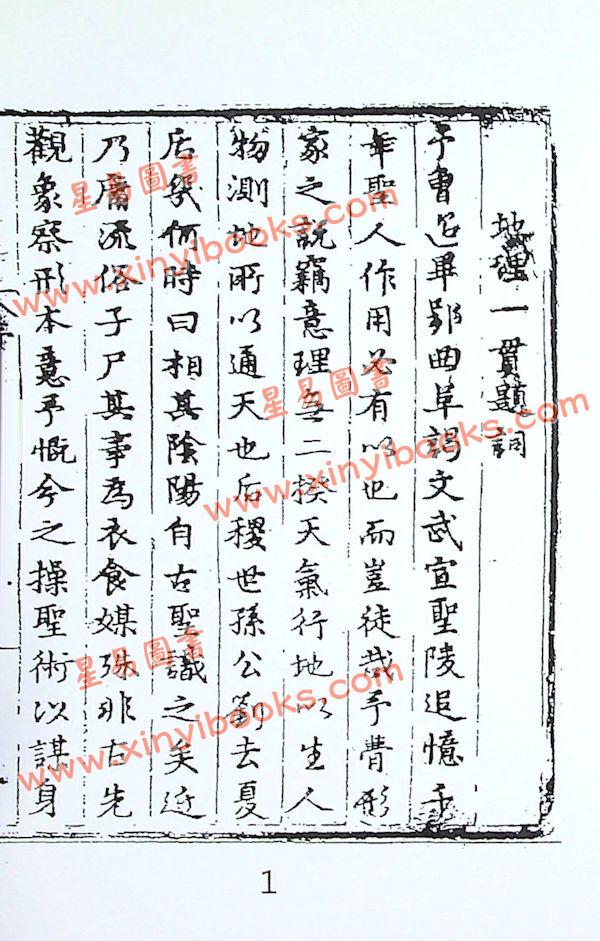 地理一貫題詞
予曾過畢郢曲阜謁文武宣聖陵追憶千
年聖人作用必有以也而豈徒哉予嘗形
家之說竊意理無二揆天氣行地以生人
物測地所以通天也后稷世孫公劉去夏
后幾何時曰相其陰陽自古聖識之矣近
乃屬流俗子尸其事為衣食媒殊非古先
觀象察形本意予慨今之操聖術以謀身
1
星易圖書
www.xinyibooks.com
星易圖書
www.xinyibooks.com
星易圖書
www.xinyibooks.com